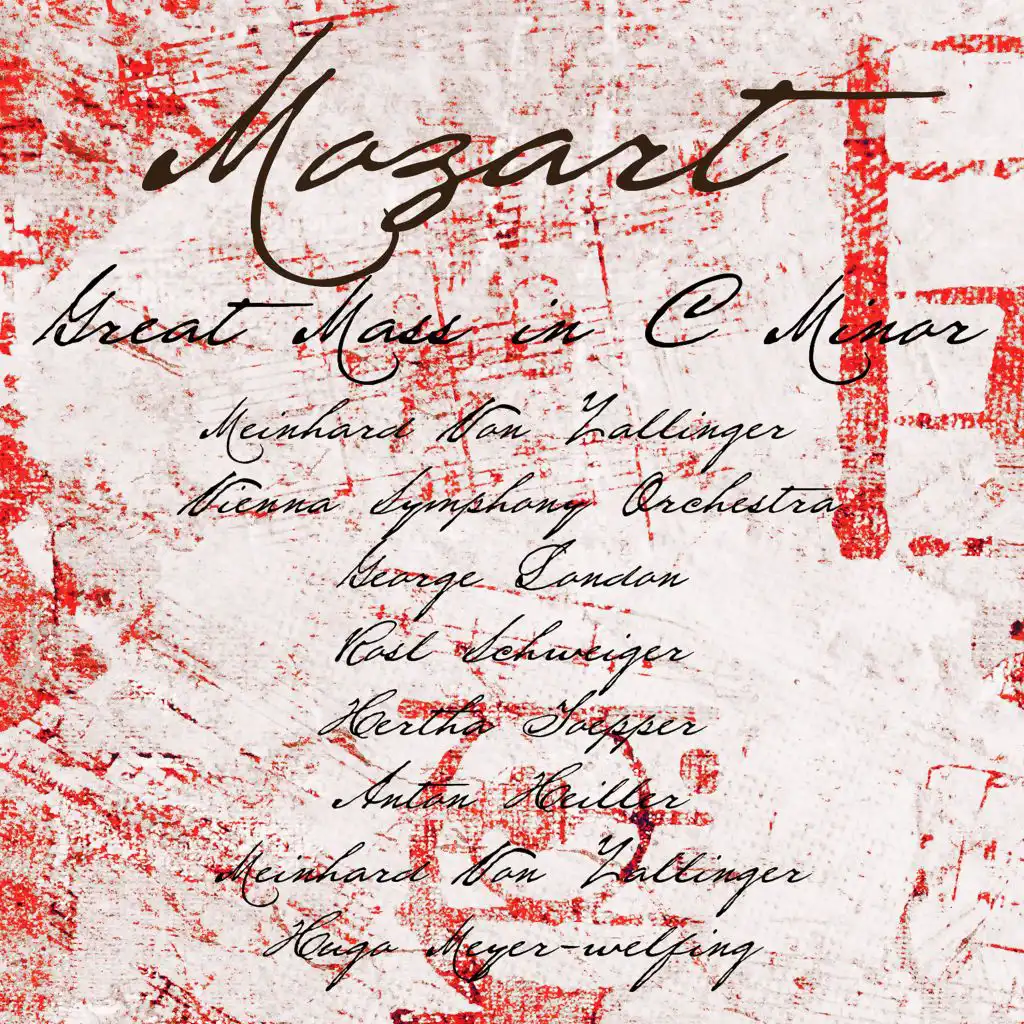 Mozart
Great Mass in C Minor
Meinhard Von Zallinger
Vienna Symphony Orchestra
George London
Rosl Schweiger
Hertha Toepper
Anton Heiller
Meinhard Von Zaltinger
Hugo Meyer-welfing